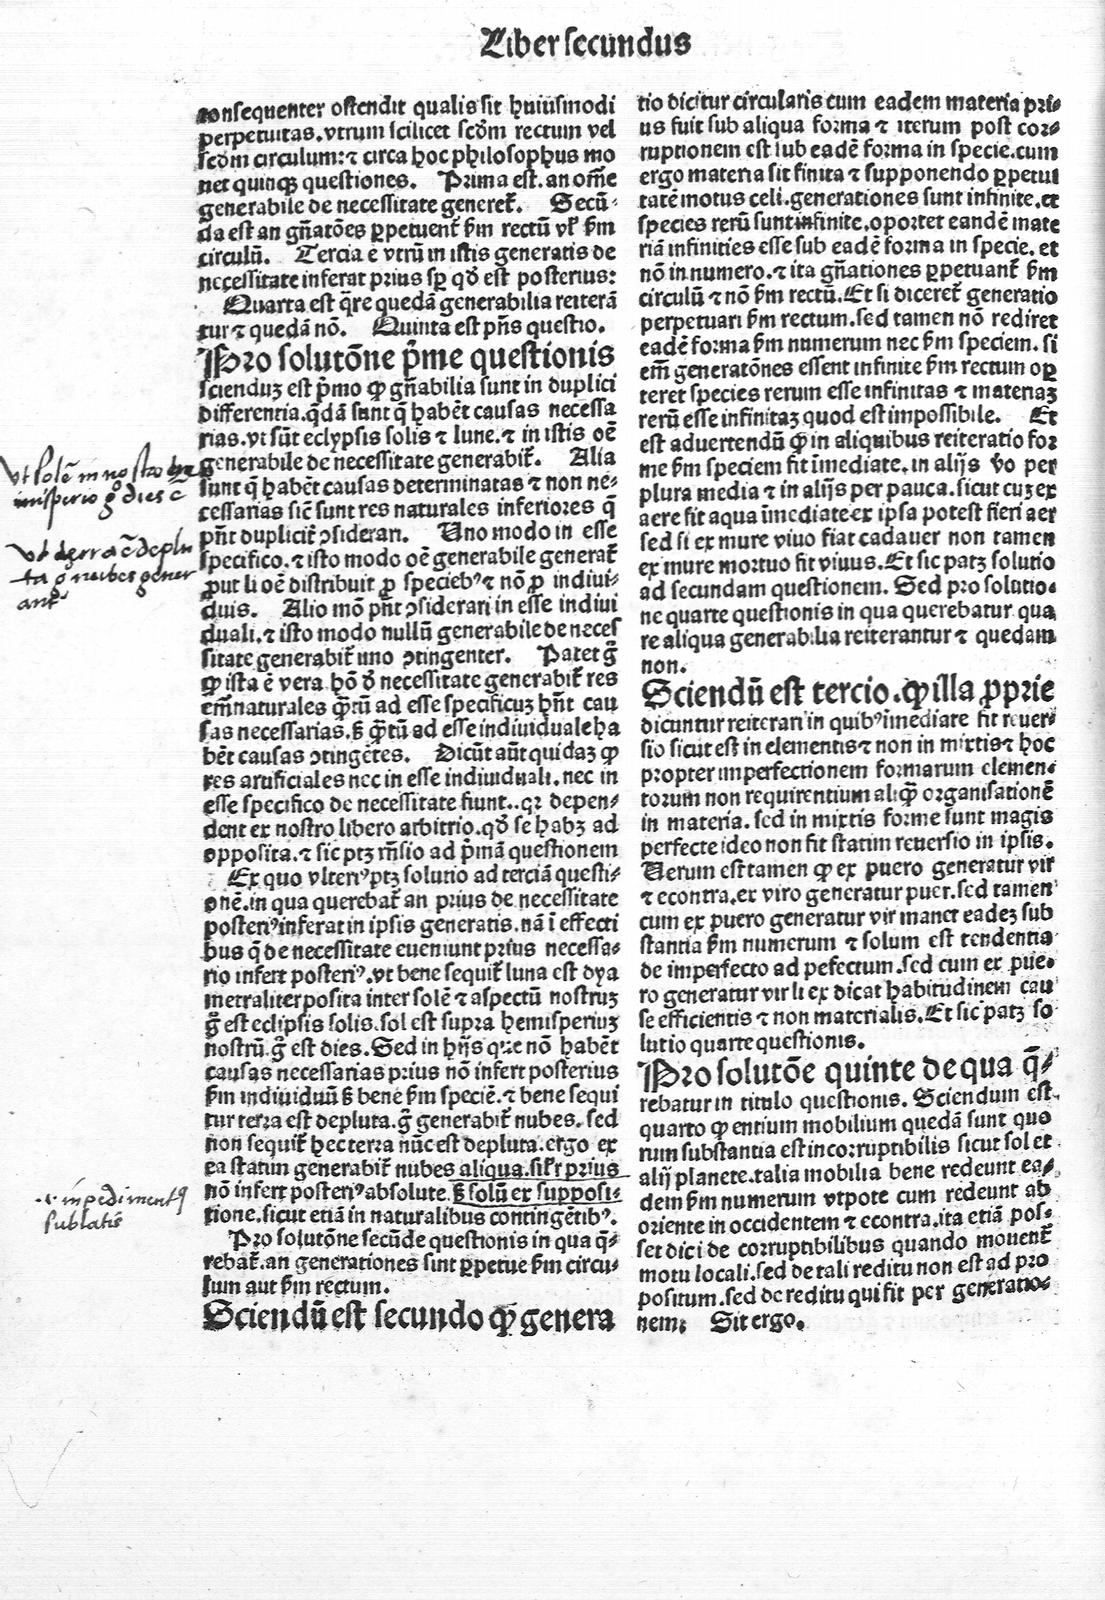 Liber secundus
consequenter ostendit qualis sit huiusmodi
perpetuitas.vtrum scilicet scd̄m rectum vel
scd̄m circulum:⁊ circa hoc philosophus mo
net quinqꝫ questiones. Prima est.an om̄e
generabile de necessitate generet̄. Secū⸗
da est an gn̄atōes ꝑpetuent̄ ẜm rectū vl̓ ẜm
circulū. Tercia ē vtrū in istis generatis de
necessitate inferat prius sꝑ qd̄ est posterius:
Quarta est q̄re quedā generabilia reiterā
tur ⁊ quedā nō. Quinta est pn̄s questio.
Pro solutōne p̄me questionis
scienduꝫ est p̄mo ꝙ gn̄abilia sunt in duplici
differentia.q̄dā sunt q̄ habēt causas necessa
rias.vt sūt eclypsis solis ⁊ lune.⁊ in istis oē
generabile de necessitate generabit̄. Alia
sunt q̄ habēt causas determinatas ⁊ non ne⸗
cessarias sic̄ sunt res naturales inferiores q̄
pn̄t duplicit̄ ꝯsiderari. Uno modo in esse
specifico.⁊ isto modo oē generabile generat̄
ꝓut li oē distribuit ꝓ speciebꝰ ⁊ nō ꝓ indiui⸗
duis. Alio mō pn̄t ꝯsiderari in esse indiui
duali.⁊ isto modo nullū generabile de neces
sitate generabit̄ uno ꝯtingenter. Patet ḡ
ꝙ ista ē vera hō d̄ necessitate generabit̄ res
em̄ naturales q̄tū ad esse specificuꝫ hn̄t cau
sas necessarias.ꝫ q̄tū ad esse indiuiduale ha
bēt causas ꝯtingētes. Dicūt aūt quidaꝫ ꝙ
res artificiales nec in esse indiuiduali.nec in
esse specifico de necessitate fiunt..qꝛ depen⸗
dent ex nostro libero arbitrio.qd̄ se habꝫ ad
opposita.⁊ sic ptꝫ rn̄sio ad p̄mā questionem
Ex quo vlteriꝰ ptꝫ solutio ad terciā questi⸗
onē.in qua querebat̄ an prius de necessitate
posteriꝰ inferat in ipsis generatis.nā ī effecti
bus q̄ de necessitate eueniunt prius necessa⸗
rio infert posteriꝰ.vt bene sequit̄ luna est dya
metraliter posita inter solē ⁊ aspectū nostruꝫ
ḡ est eclipsis solis.sol est supra hemisperiuꝫ
nostrū.ḡ est dies.Sed in hijs que nō habēt
causas necessarias prius nō infert posterius
ẜm indiuiduū ꝫ bene ẜm speciē.⁊ bene sequi
tur terra est depluta.ḡ generabit̄ nubes.sed
non sequit̄ hec terra nūc est depluta.ergo ex
ea statim generabit̄ nubes aliqua.silr̄ prius
nō infert posteriꝰ absolute.ꝫ solū ex supposi⸗
tione.sicut etiā in naturalibus contingētibꝰ.
Pro solutōne secūde questionis in qua q̄⸗
rebat̄.an generationes sunt ꝑpetue ẜm circu⸗
lum aut ẜm rectum.
Sciendū est secundo ꝙ genera
tio dicitur circularis cum eadem materia pri⸗
us fuit sub aliqua forma ⁊ iterum post cor⸗
ruptionem est sub eadē forma in specie.cum
ergo materia sit finita ⁊ supponendo ꝑpetui
tatē motus celi.generationes sunt infinite.et
species rerū sunt infinite.oportet eandē mate
riā infinities esse sub eadē forma in specie.et
nō in numero.⁊ ita gn̄ationes ꝑpetuant̄ ẜm
circulū ⁊ nō ẜm rectū.Et si diceret̄ generatio
perpetuari ẜm rectum.sed tamen nō rediret
eadē forma ẜm numerum nec ẜm speciem.si
em̄ generatōnes essent infinite ẜm rectum oꝑ
teret species rerum esse infinitas ⁊ materiaꝫ
rerū esse infinitaꝫ quod est impossibile. Et
est aduertendū ꝙ in aliquibus reiteratio for
me ẜm speciem fit īmediate.in alijs v̄o per
plura media ⁊ in alijs per pauca.sicut cuꝫ ex
aere fit aqua īmediate ex ipsa potest fieri aer
sed si ex mure viuo fiat cadauer non tamen
ex mure mortuo fit viuus.Et sic patꝫ solutio
ad secundam questionem. Sed pro solutio⸗
ne quarte questionis in qua querebatur qua
re aliqua generabilia reiterantur ⁊ quedam
non.
Sciendū est tercio.ꝙ illa ꝓprie
dicuntur reiterari in quibꝰ īmediate fit reuer⸗
sio sicut est in elementis ⁊ non in mixtis ⁊ hoc
propter imperfectionem formarum elemen⸗
torum non requirentium aliq̄ organisationē
in materia.sed in mixtis forme sunt magis
perfecte ideo non fit statim reuersio in ipsis.
Uerum est tamen ꝙ ex puero generatur vir
⁊ econtra.ex viro generatur puer.sed tamen
cum ex puero generatur vir manet eadeꝫ sub
stantia ẜm numerum ⁊ solum est tendentia
de imperfecto ad pefectum.sed cum ex pue⸗
ro generatur vir li ex dicat habitudinem cau
se efficientis ⁊ non materialis.Et sic patꝫ so
lutio quarte questionis.
Pro solutōe quinte de qua q̄⸗
rebatur in titulo questionis. Sciendum est.
quarto ꝙ entium mobilium quedā sunt quo
rum substantia est incorruptibilis sicut sol et
alij planete.talia mobilia bene redeunt ea⸗
dem ẜm numerum vtpote cum redeunt ab
oriente in occidentem ⁊ econtra.ita etiā pos⸗
set dici de corruptibilibus quando mouent̄
motu locali.sed de tali reditu non est ad pro
positum.sed de reditu qui fit per generatio⸗
nem: Sit ergo.
vt solē in nostro
imisperio ḡ dies ē
vt terra ē deplu
ta ḡ nubes gener
ant̄
impedimentꝭ
sublatis